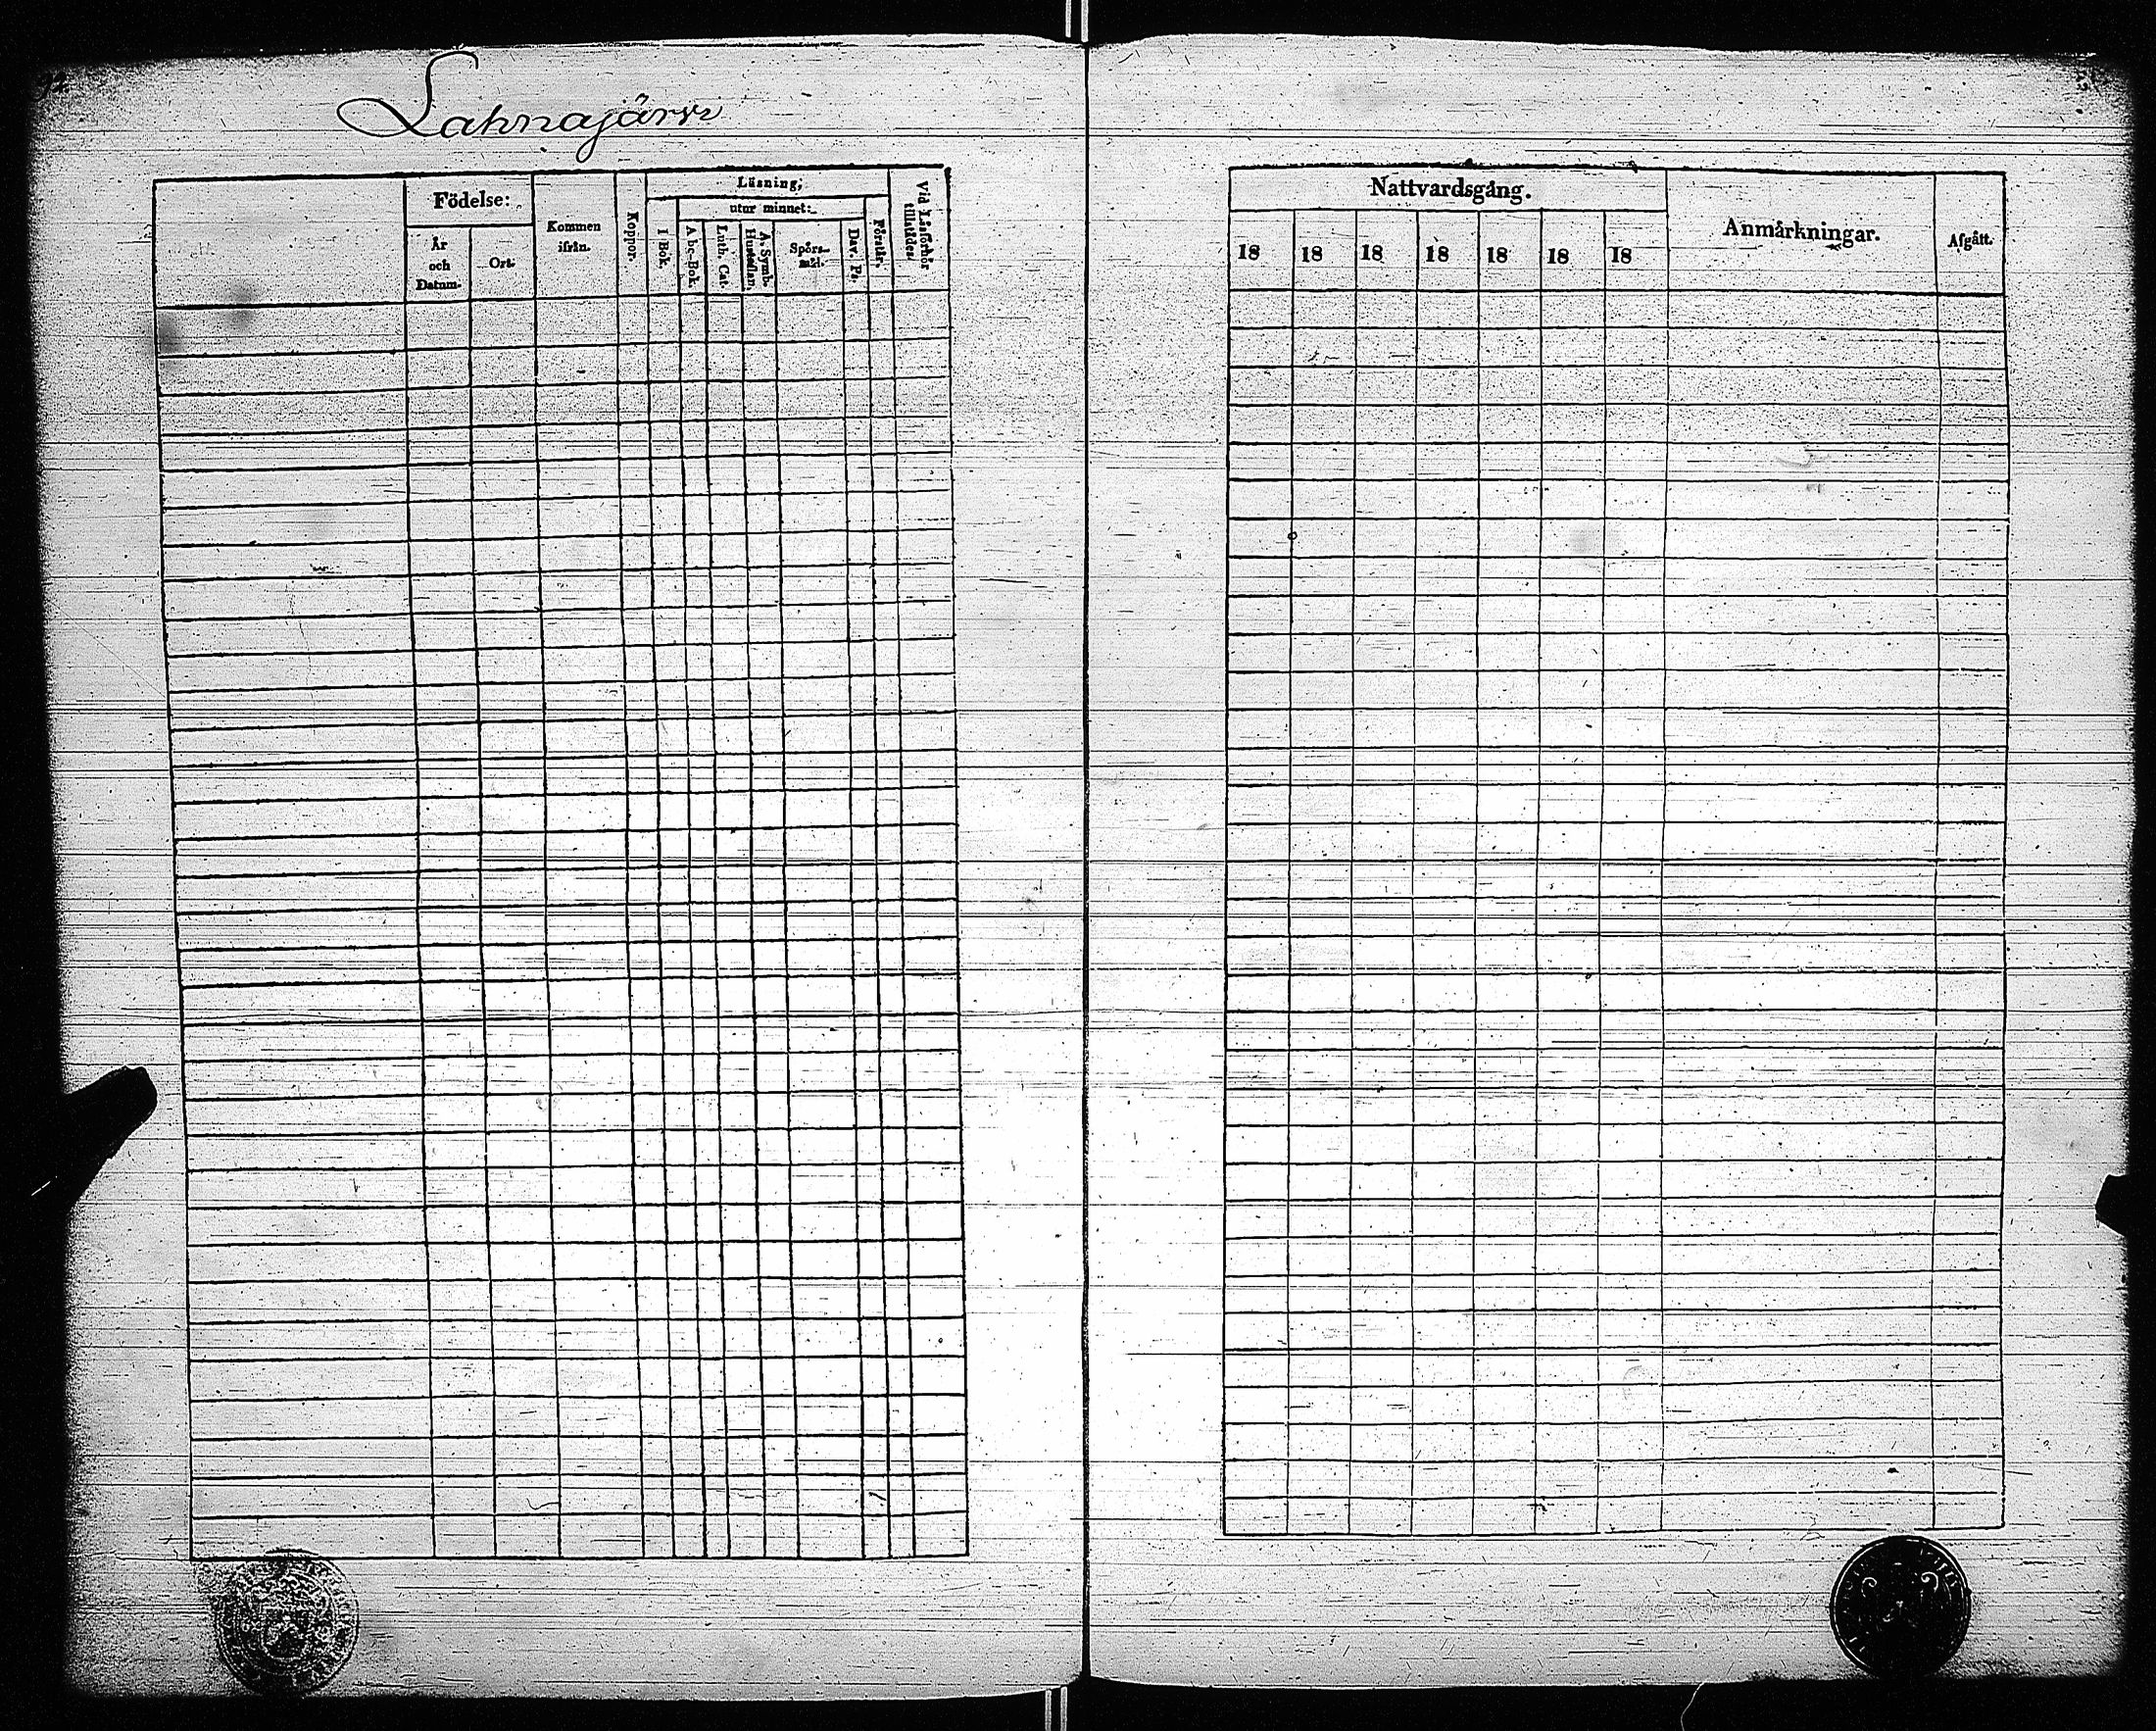 Lahnajärvi
Födelse:
År och Datum.
Ort.
Kommen ifrån.
Koppor.
Läsning;
utur minnet:
I Bok.
A b c-Bok.
Luth. Cat.
A. Symb. Hustaflan.
Spörsmål.
Dav. Ps.
Förstår.
Vid Läsförhör tillstädes
Nattvardsgång.
18 18 18 18 18 18 18
Anmärkningar.
Afgått.